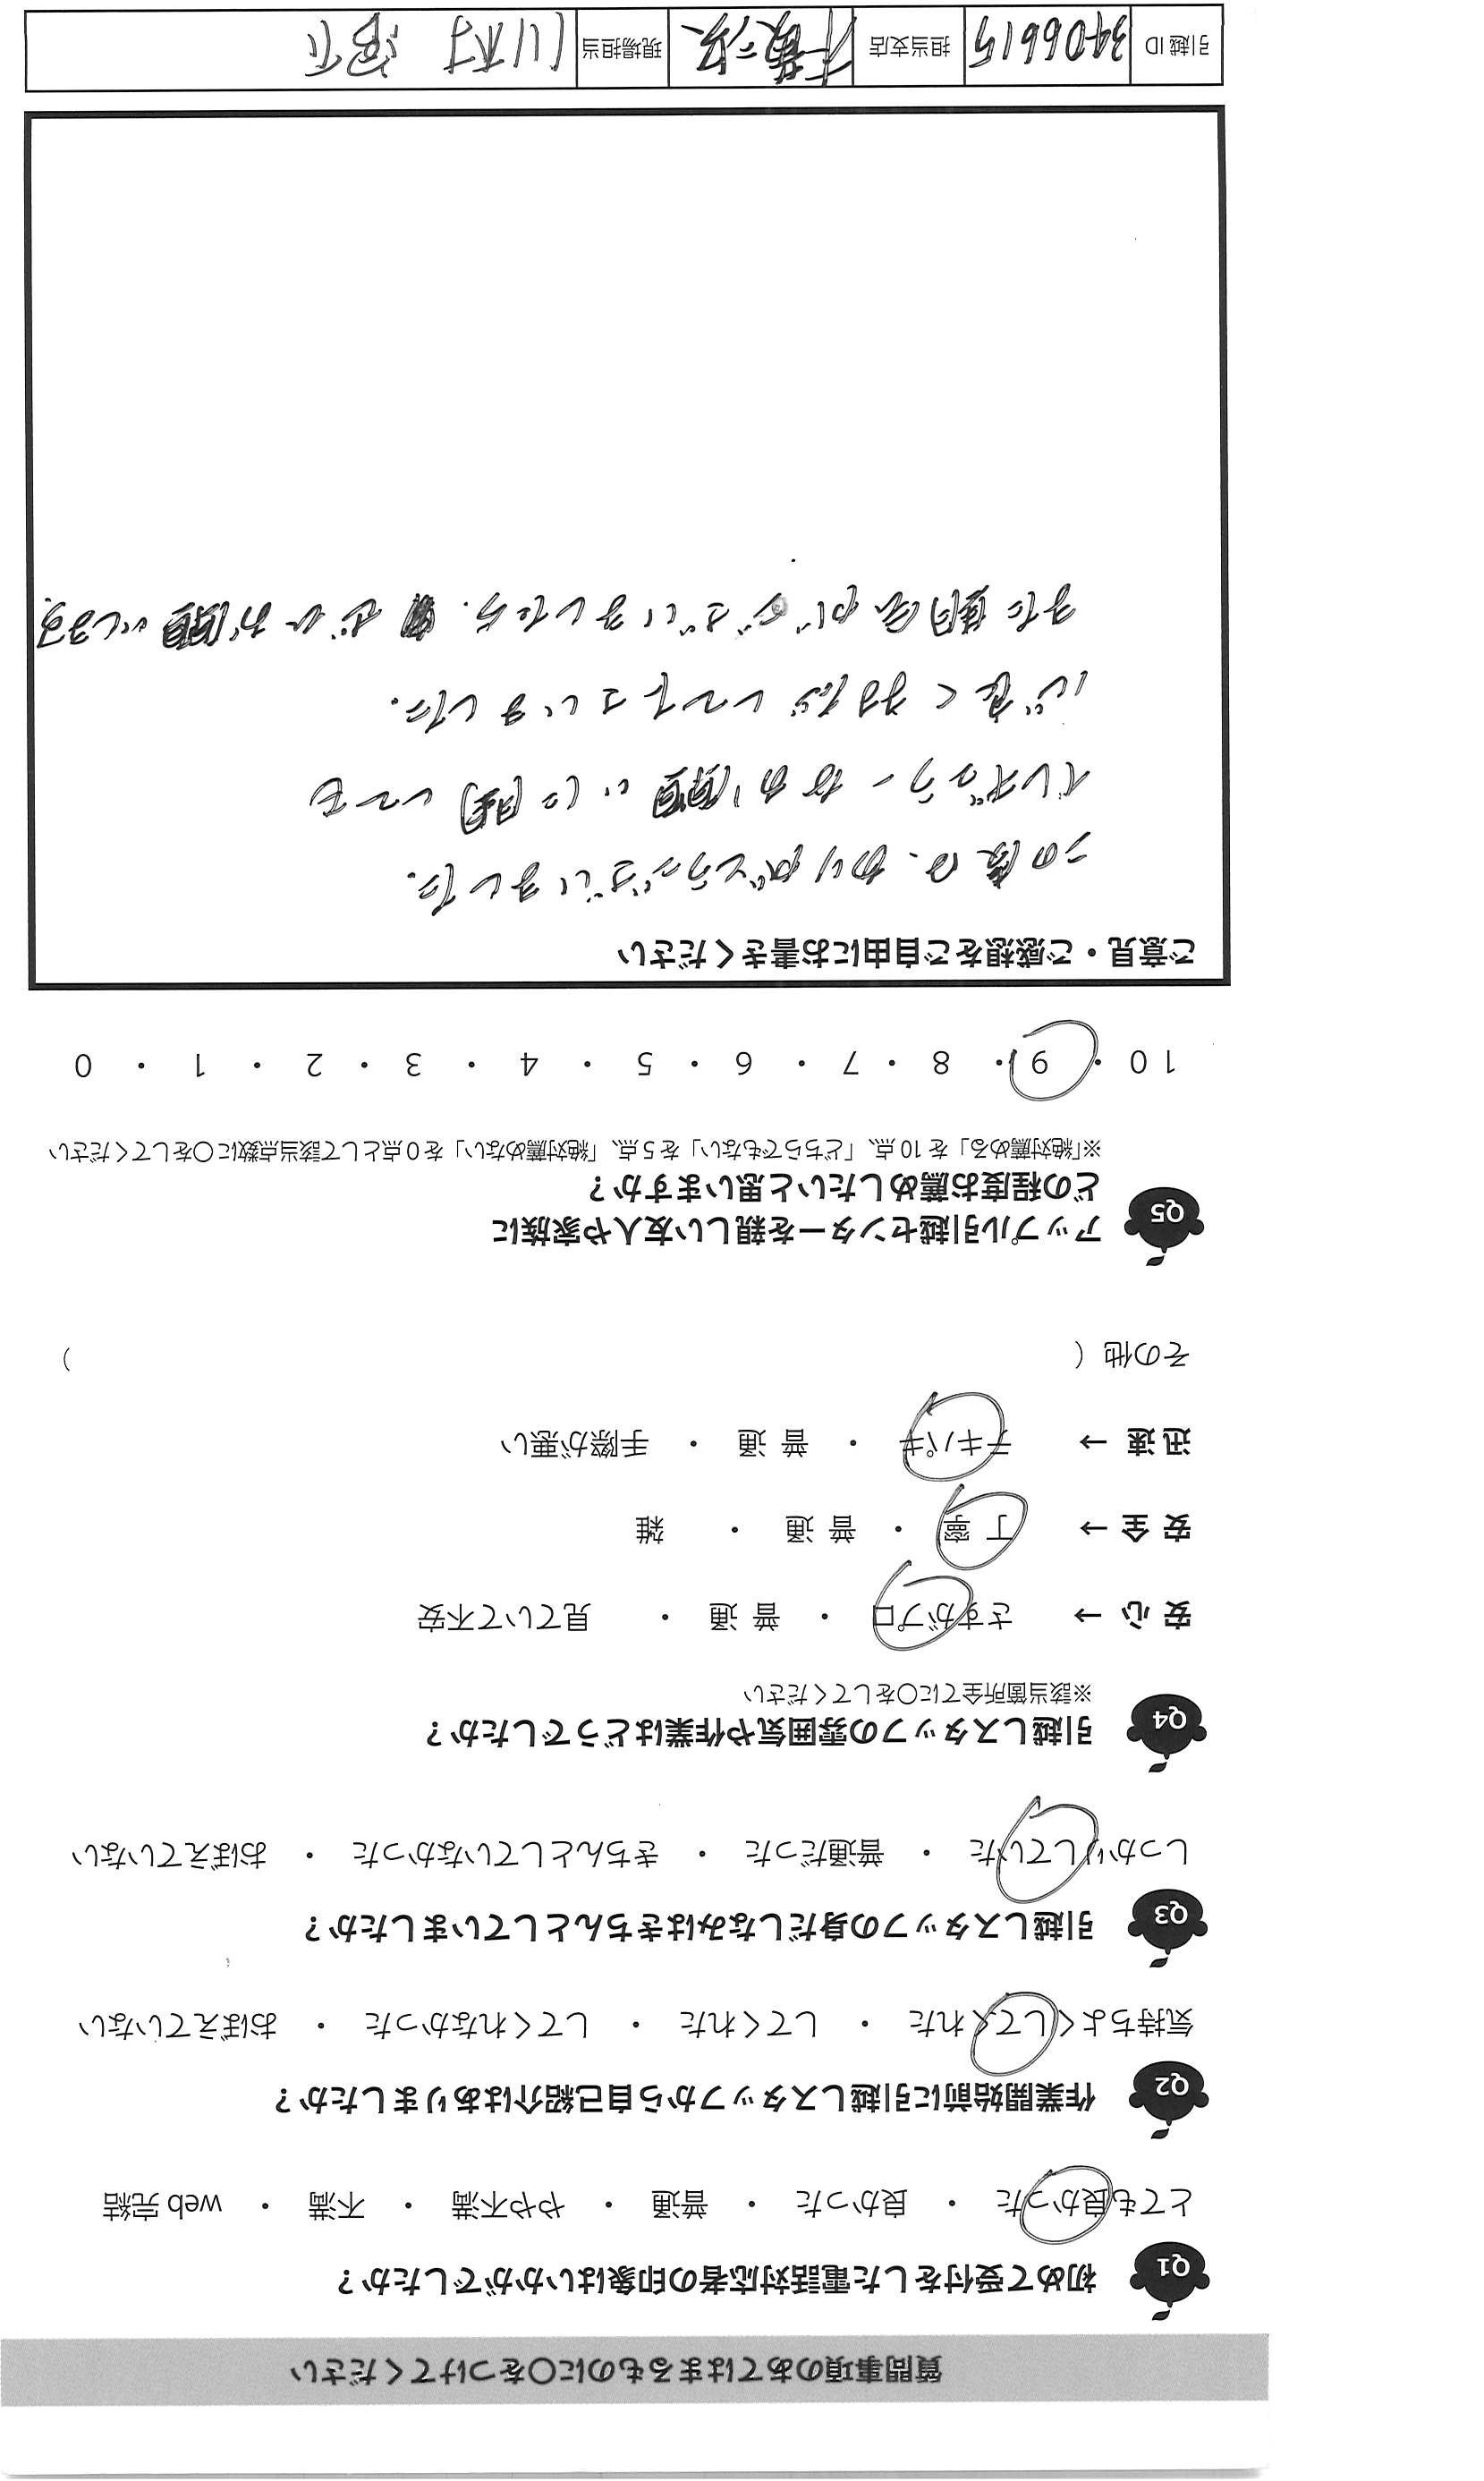 質問事項のあてはまるものに〇をつけてください
Q1 初めて受付をした電話対応者の印象はいかがでしたか？
とても良かった ・ 良かった ・ 普通 ・ やや不満 ・ 不満 ・ web 完結
Q2 作業開始前に引越しスタッフから自己紹介はありましたか？
気持ちよくしてくれた ・ してくれた ・ してくれなかった ・ おぼえていない
Q3 引越しスタッフの身だしなみはきちんとしていましたか？
しっかりしていた ・ 普通だった ・ きちんとしていなかった ・ おぼえていない
Q4 引越しスタッフの雰囲気や作業はどうでしたか？
※該当箇所全てに〇をしてください
安心 → さすがプロ ・ 普通 ・ 見ていて不安
安全 → 丁寧 ・ 普通 ・ 雑
迅速 → テキパキ ・ 普通 ・ 手際が悪い
その他（ ）
Q5 アップル引越センターを親しい友人や家族に
どの程度お薦めしたいと思いますか？
※「絶対薦める」を 10 点、「どちらでもない」を 5 点、「絶対薦めない」を 0 点として該当点数に〇をしてください
10 ・ 9 ・ 8 ・ 7 ・ 6 ・ 5 ・ 4 ・ 3 ・ 2 ・ 1 ・ 0
ご意見・ご感想をご自由にお書きください
この度は、ありがとうございました。
イレギュラーなお願いに関しても
心良く対応して下さいました。
また機会がございましたら、ぜひお願いします。
引越 ID 3406615 担当支店 千葉 現場担当 川村